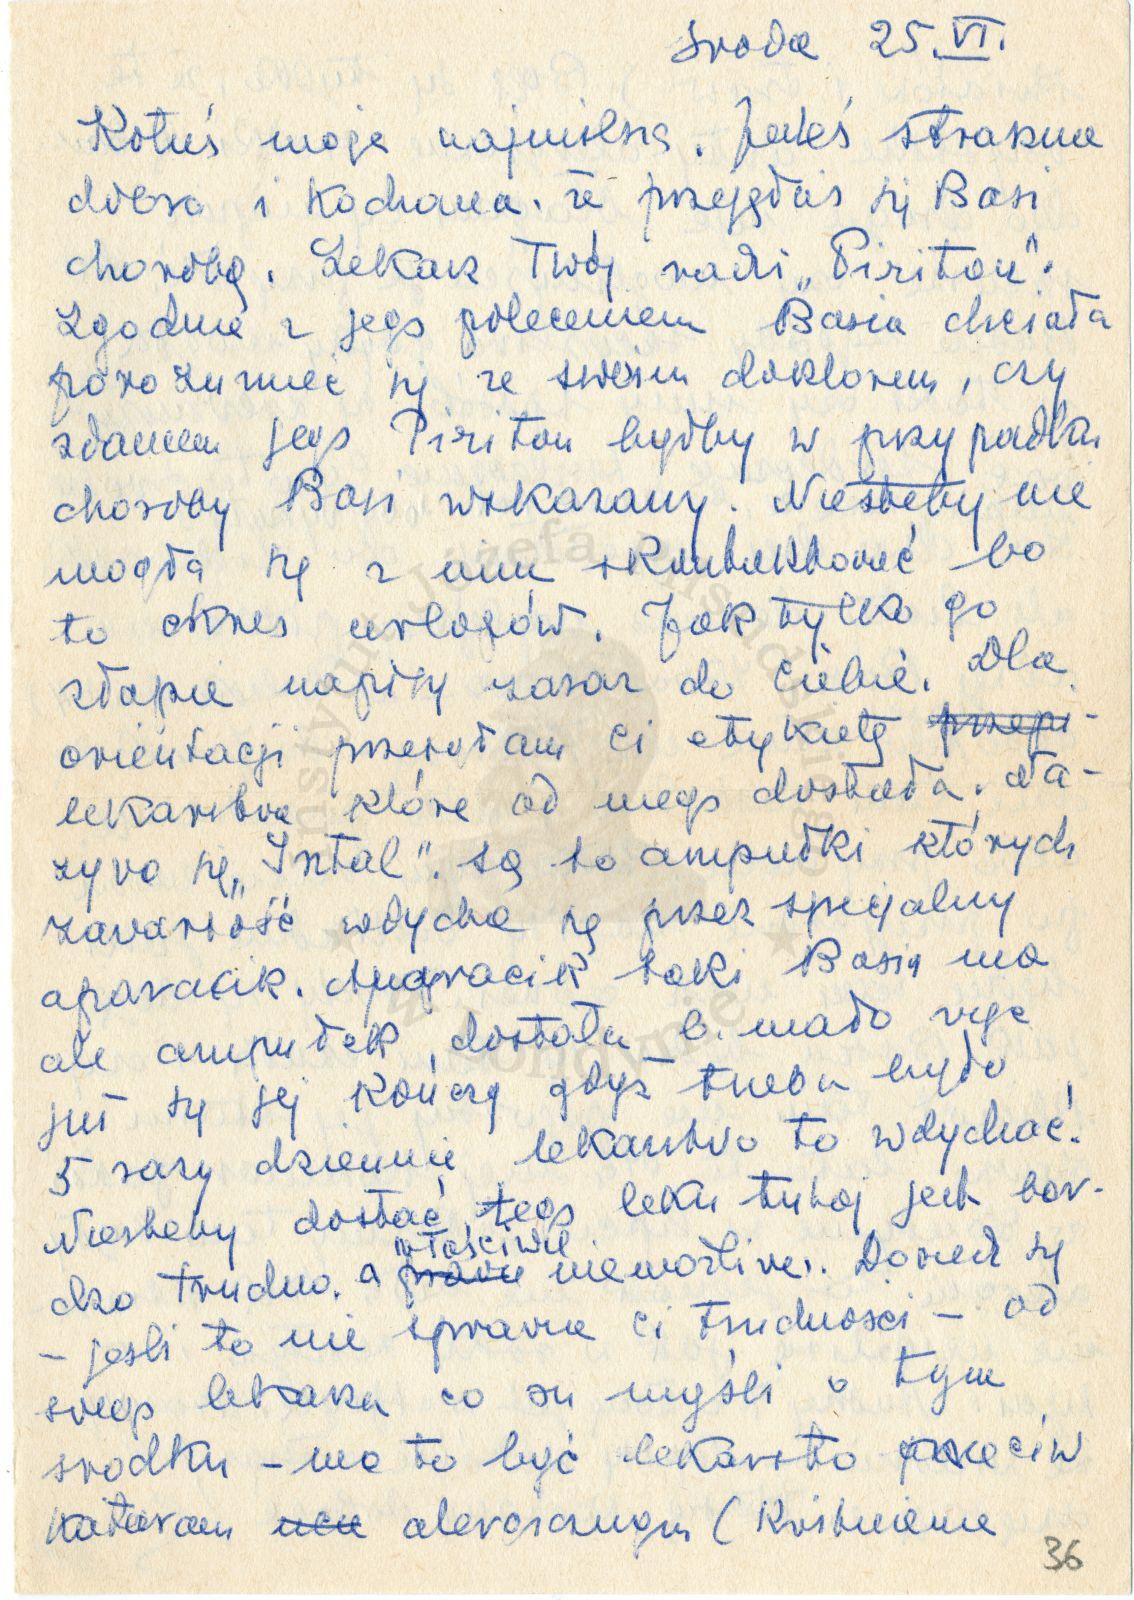 środa 25.VI.
Kotuś moja najmilsza. Jesteś strasznie
dobra i kochana, że przejęłaś się Basi
chorobą. Lekarz Twój radzi „Piriton".
Zgodnie z jego poleceniem Basia chciała
porozumieć się ze swoim doktorem, czy
zdaniem jego Piriton byłby w przypadku
choroby Basi wskazany. Niestety nie
mogła się z nim skontaktować bo
to okres urlopów. Jak tylko go
złapie napiszę zaraz do Ciebie. Dla
orientacji przesyłam Ci etykietę przepi-
lekarstwa które od niego dostała. Na-
zywa się „Intal". Są to ampułki których
zawartość wdycha się przez specjalny
aparacik. Aparacik taki Basia ma
ale ampułek dostała b. mało więc
już się jej kończą gdyż trzeba było
5 razy dziennie lekarstwo to wdychać.
Niestety dostać tego leku tutaj jest bar-
dzo trudno, a prawie właściwie niemożliwe. Dowiedz się
– jeśli to nie sprawia Ci trudności – od
swego lekarza co on myśli o tym
środku – ma to być lekarstwo przeciw
katarom alergicznym (kwitnienie
36
Instytut Józefa Piłsudskiego
w Londynie